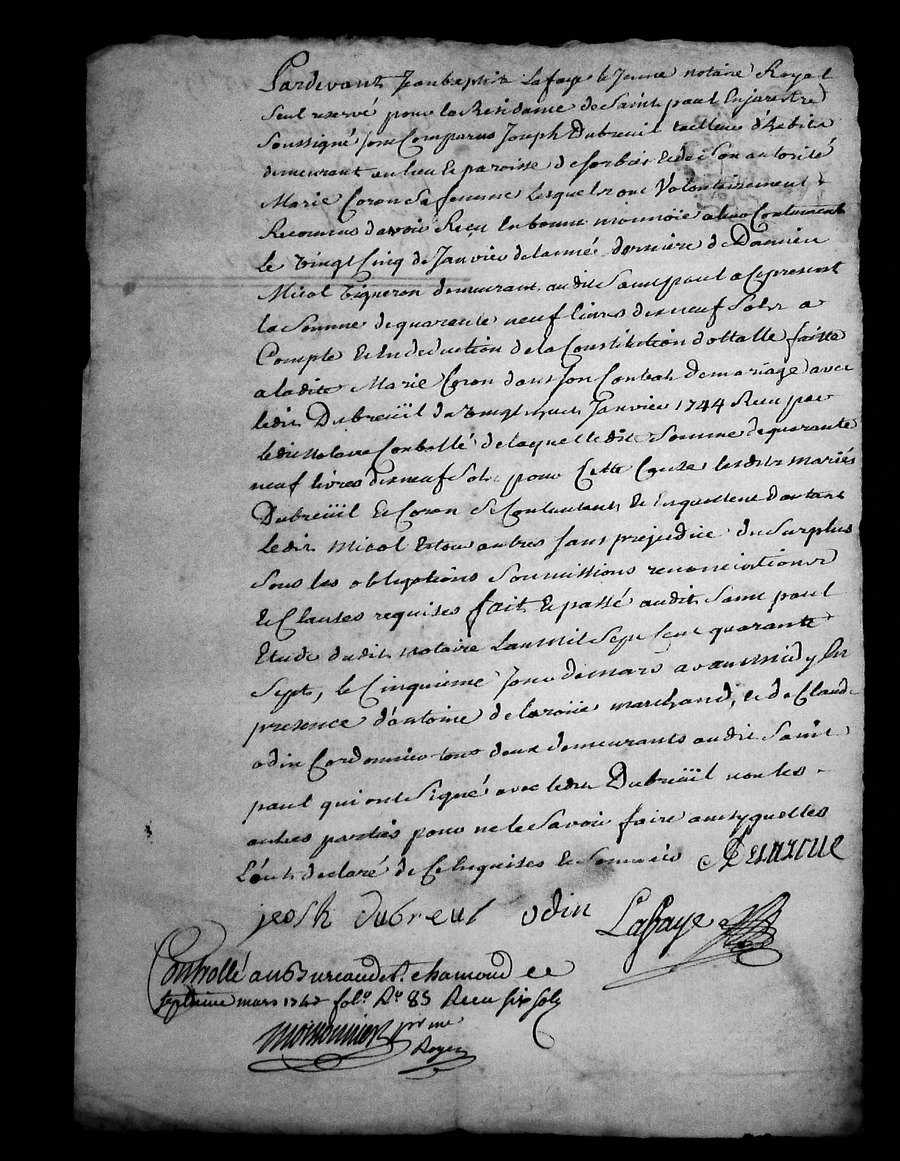 Pardevant Jeanbaptiste Lafaye le Jeune notaire Royal
seul reservé pour la Residance de Saint paul Enjarestz
Soussigné sont Comparus Joseph Dubreuil tailleur d'habits
demeurant au lieu et paroisse de Sorbier et de son autorité
Marie Coron Sa femme lesquels ont Volontairement
Reconnus davoir Reçu en bonne monnoïe Contenment
le vingt Cinq de Janvier de lannée derniere de Damien
Micol vigneron demeurant audit Saint paul a ce present
la Somme de quarante neuf livres dix neuf Sols a
Compte et En deduction de la Constitution dottalle faitte
a ladite Marie Coron dans son Contrat de mariage avec
ledit Dubreüil du vingt Janvier 1744 Recu par
ledit notaire Controllé de laquelle dite Somme de quarante
neuf livres dix neuf Sols pour Cette Cause lesdits mariés
Dubreüil et Coron Se Contentent et En quittent d'autant
ledit Micol Et tou autres sans prejudice du Surplus
Sous les obligations Soumissions renonciations
et Clauses requises fait et passé audit Saint paul
Etude dudit notaire Lan mil Sept Cent quarante
Sept, le Cinquieme Jour de mars avant midy En
presence d'antoine de laroüe marchand, et de Claude
odin Cordonnier tous deux demeurants audit Saint
paul qui ont Signé avec ledit Dubreüil non les
autres parties pour ne le Savoir faire ainsy quelles
L'ont declaré de Ce Enquises et Sommées
jeosh dubreul odin Lafaye
Controllé au Bureau de St. chamond ce
septieme mars 1747 fol. Ro. 85 Recu six sols